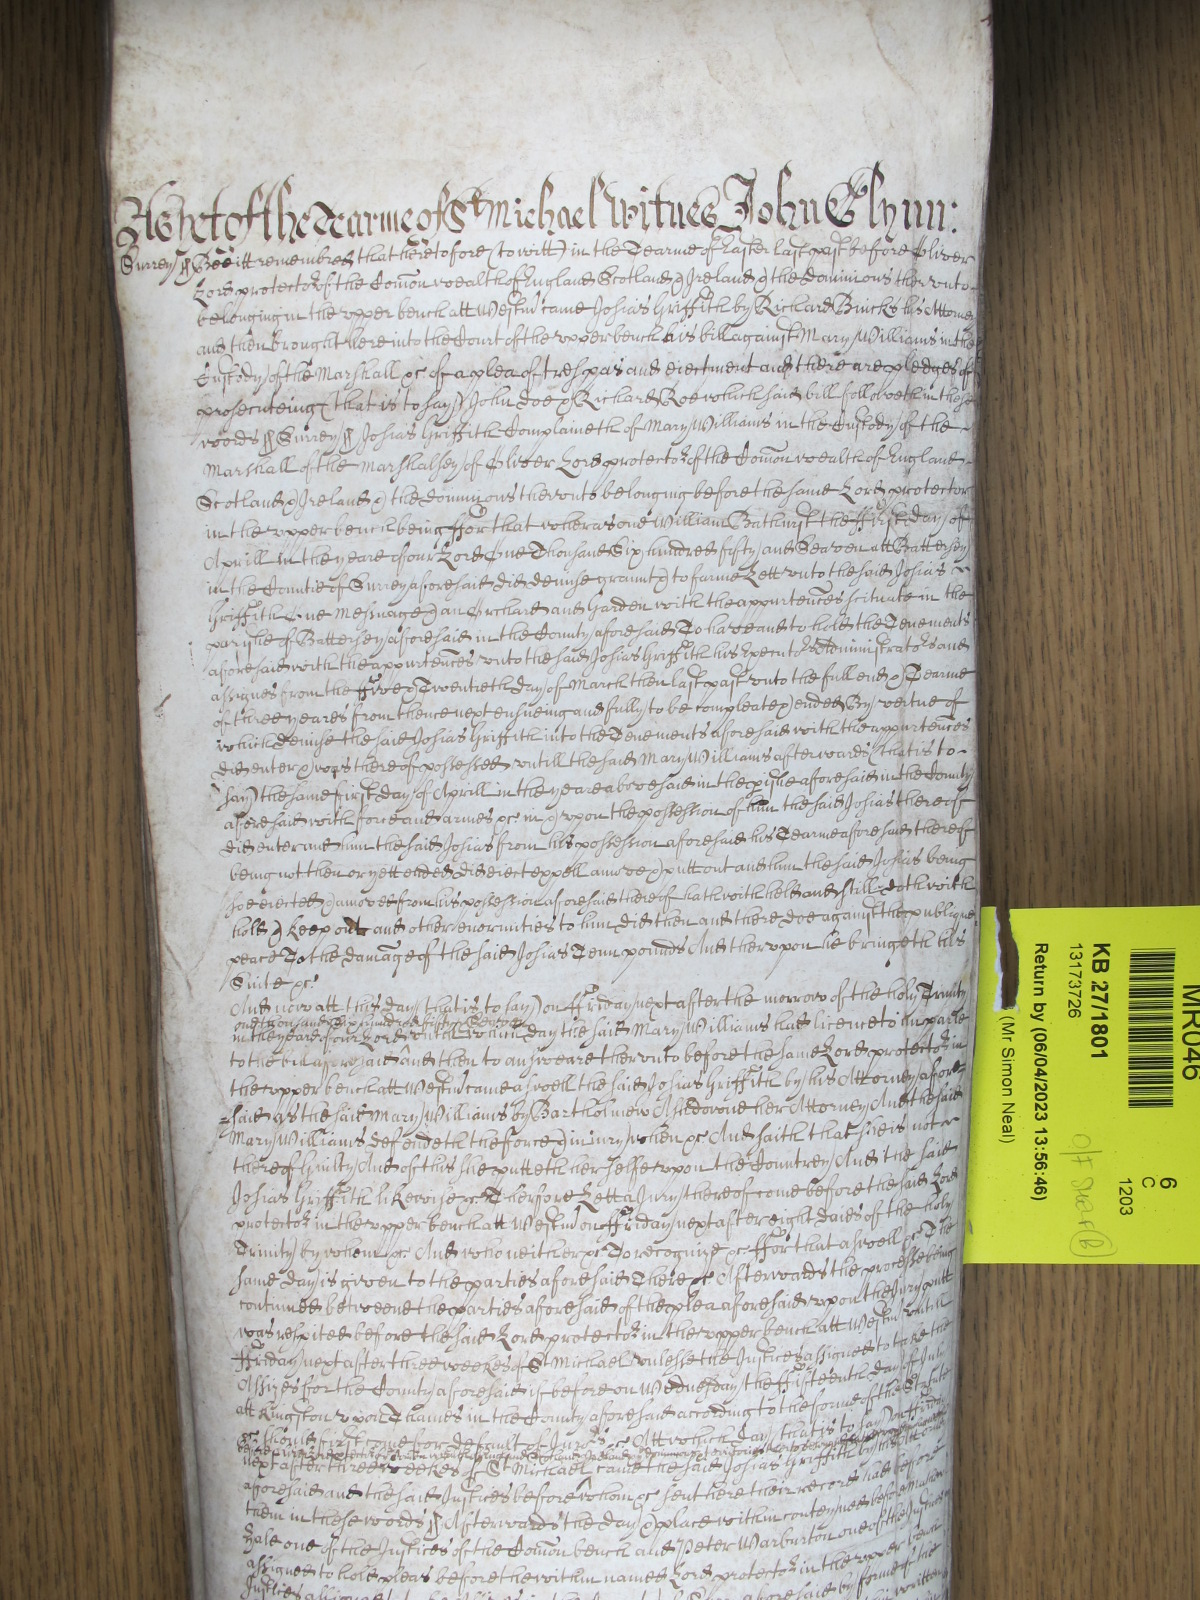 As yet of the Tearme of St Michael Witnes John Glynn:
Surrey ss Bee itt remembred that heretofore (to witt) in the Tearme of Easter last past before Oliver
Lord protector of the Comon wealth of England Scotland & Ireland & the dominions therunto
belonging in the upper bench att Westm came Josias Griffith by Richard Bricks his Attorney
and then brought here into the Court of the upper bench his bill against Mary Williams in the
Custody of the Marshall &c of a plea of trespas and eiectment and there are pledges of
prosecuteing (that is to say) John Doe & Richard Roe which said bill followeth in these
words ss Surrey ss Josias Griffith Complaineth of Mary Williams in the Custody of the
Marshall of the Marshalsey of Oliver Lord protector of the Comon wealth of England
Scotland & Ireland & the dominions therunto belonging before the same Lord protector
in the upper bench being ffor that wheras one William Bathurst the ffirst day of
Aprill in the yeare of our Lord One Thousand Six hundred fifty and Seaven att Battersey
in the Countie of Surrey aforesaid did demise graunt & to farme Lett unto the said Josias
Griffith One Messuage & an Orchard and Garden with the appurtences scituate in the
parishe of Battersey aforesaid in the County aforesaid To have and to hold the Tenements
aforesaid with the appurtences unto the said Josias Griffith his Executors Administrators and
assignes from the ffive & Twentieth day of March then last past unto the full end & Tearme
of three yeares from thence next ensueing and fully to be compleate & ended By vertue of
which demise the said Josias Griffith into the Tenements aforesaid with the appurtences
did enter & was thereof possessed untill the said Mary Williams afterwards (that is to
say) the same first day of Aprill in the yeare abovesaid in the pishe aforesaid in the County
aforesaid with force and armes &c in & upon the possession of him the said Josias thereof
did enter and him the said Josias from his possession aforesaid his Tearme aforesaid thereof
being not then or yett ended did eiect expell amove & putt out and him the said Josias being
soe eiected & amoved from his possession aforesaid thereof hath withheld and still doth with
hold & keep out and other enormities to him did then and there doe against the publique
peace To the damage of the said Josias Tenn pounds And therupon he bringeth his
Suite &c
And now att this day (that is to say) on ffriday next after the morrow of the holy Trinity
one thousand six hundred fifty & seaven
in the yeare of our Lord untill which day the said Mary Williams had licence to imparle
to the bill aforesaid and then to answeare therunto before the same Lord protector in
the upper bench att Westm came aswell the said Josias Griffith by his Attorney afore
said as the said Mary Williams by Bartholmew her Attorney And the said
Mary Williams defendeth the force & iniury when &c And saith that she is not
thereof Guilty And of this she putteth her selfe upon the Countrey And the said
Josias Griffith likewise &c Therfore Lett a Jury thereof come before the said Lord
protector in the upper bench att Westm on ffriday next after eight daies of the holy
Trinity by whom &c And who neither &c To recognize &c ffor that aswell &c The
same day is given to the parties aforesaid There &c Afterwards the processe being
continued betweene the parties aforesaid of the plea aforesaid upon the Jury putt
was respited before the said Lord protector in the upper bench att Westm untill
ffriday next after three weekes of St Michael unlesse the Justices assigned to take the
Assizes for the County aforesaid if before on Wednesday the ffifteenth day of July
att Kingston upon Thames in the County aforesaid according to the forme of the Statute
&c should first come for default of Jurors &c Att which day (that is to say) on ffriday
next after three weekes of St Michael came the said Josias Griffith by his Attorney
aforesaid and the said Justices before whom &c sent here their record had before
them in these words ss Afterwards the day & place within conteyned before Mathew
Hale one of the Justices of the Comon bench and Peter Warburton one of the Justices
assigned to hold pleas before the within named Lord protector in the upper bench
Justices assigned aforesaid by forme of the
MR046
6
C
1203
KB 27/1801
13173726
Return by (06/04/2023 13:56:46)
(Mr Simon Neal)